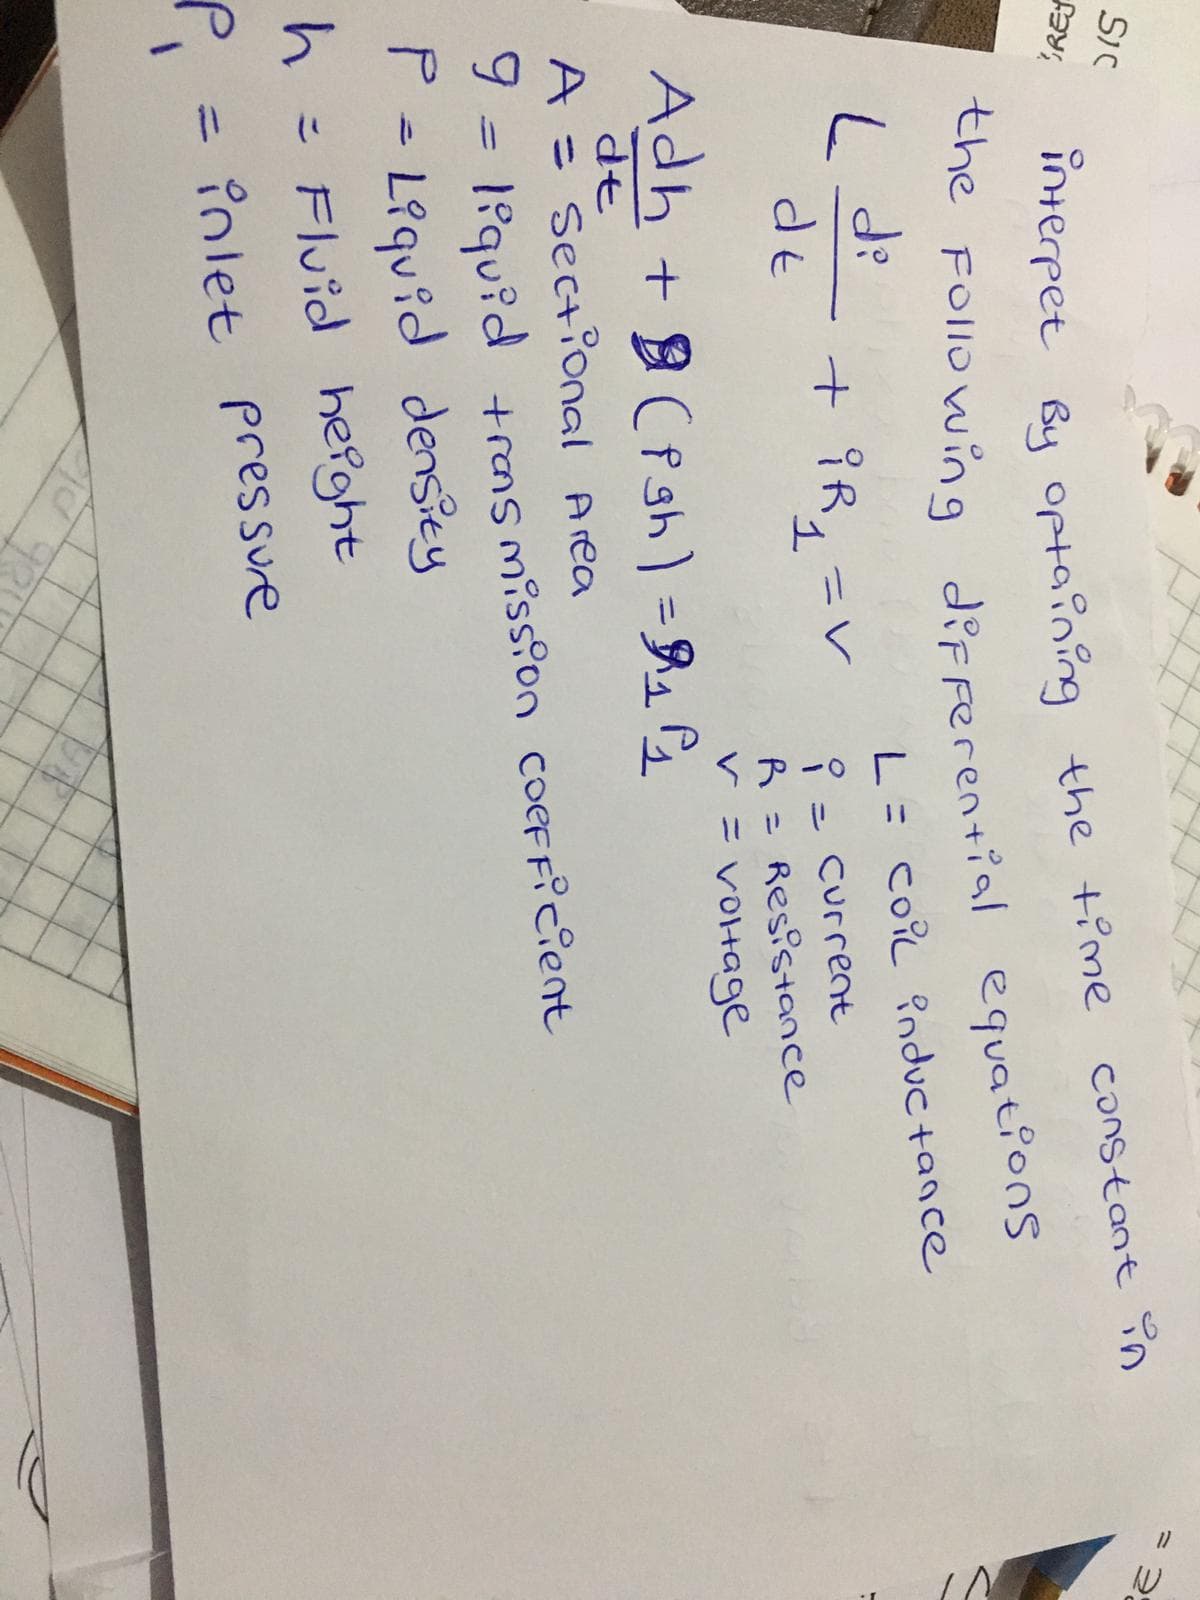 interpet By optaining the time constant in
the Following differential equations
L di/dt + iR1 = V
L = coil inductance
i = current
R = Resistance
V = voltage
A dh/dt + (Pgh) = P1
A = Sectional Area
g = liquid transmission coefficient
P = Liquid density
h = Fluid height
P1 = inlet pressure